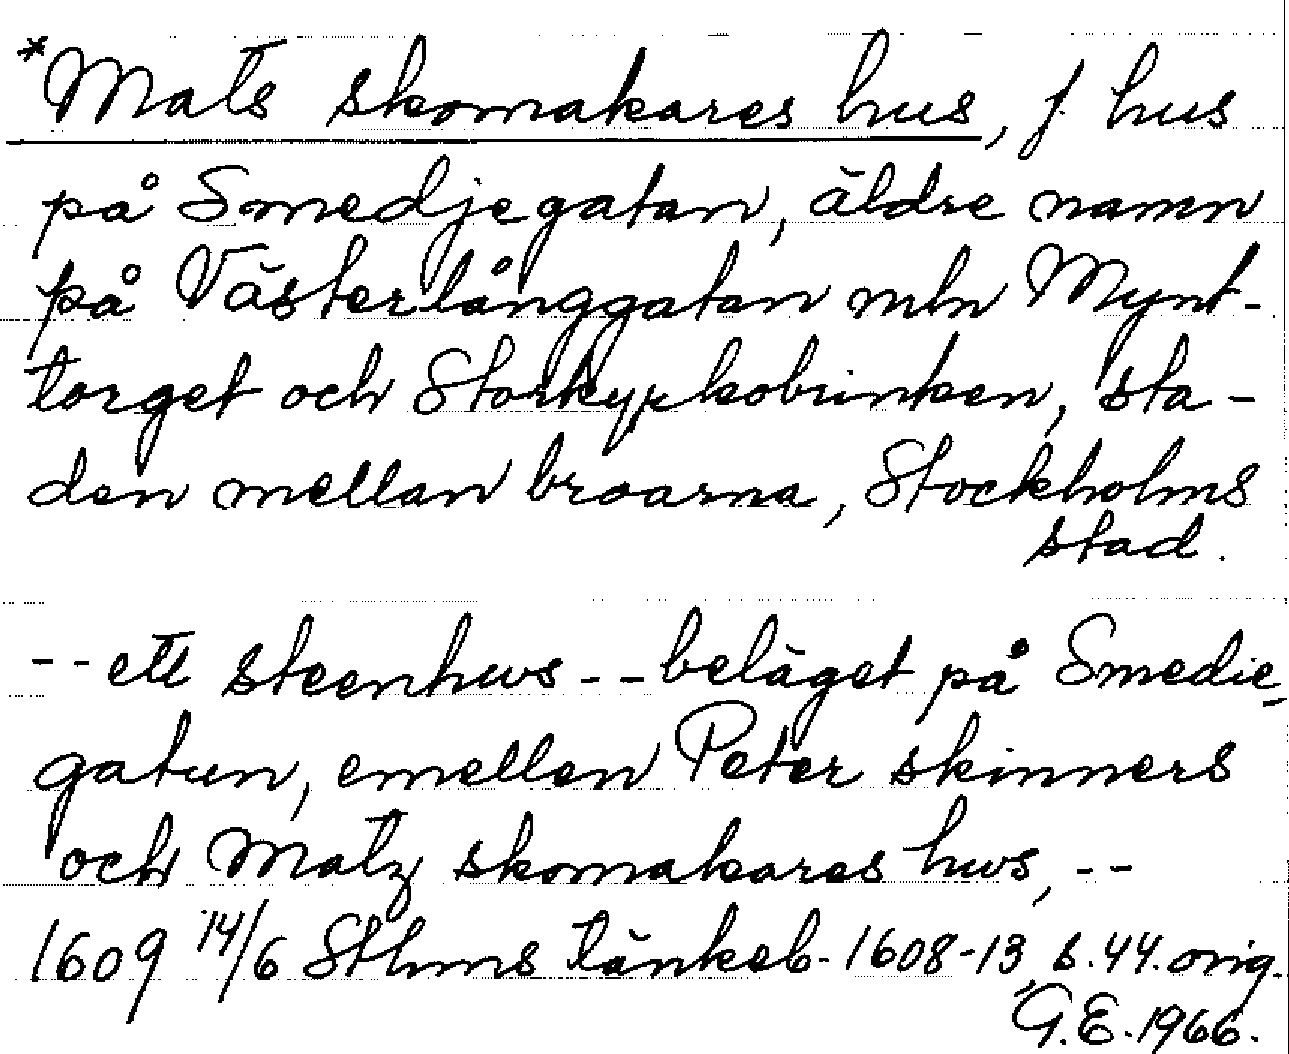 *Mats skomakares hus, f. hus
på Smedjegatan, äldre namn
på Västerlånggatan mln Mynt-
torget och Storkyrkobrinken, sta-
den mellan broarna, Stockholms
stad.
-- ett steenhws -- beläget på Smedie-
gatun, emellen Peter skinners
och Matz skomakares hws, --
1609 14/6 Sthms tänkeb. 1608-13, s. 44. orig.
G.E. 1966.